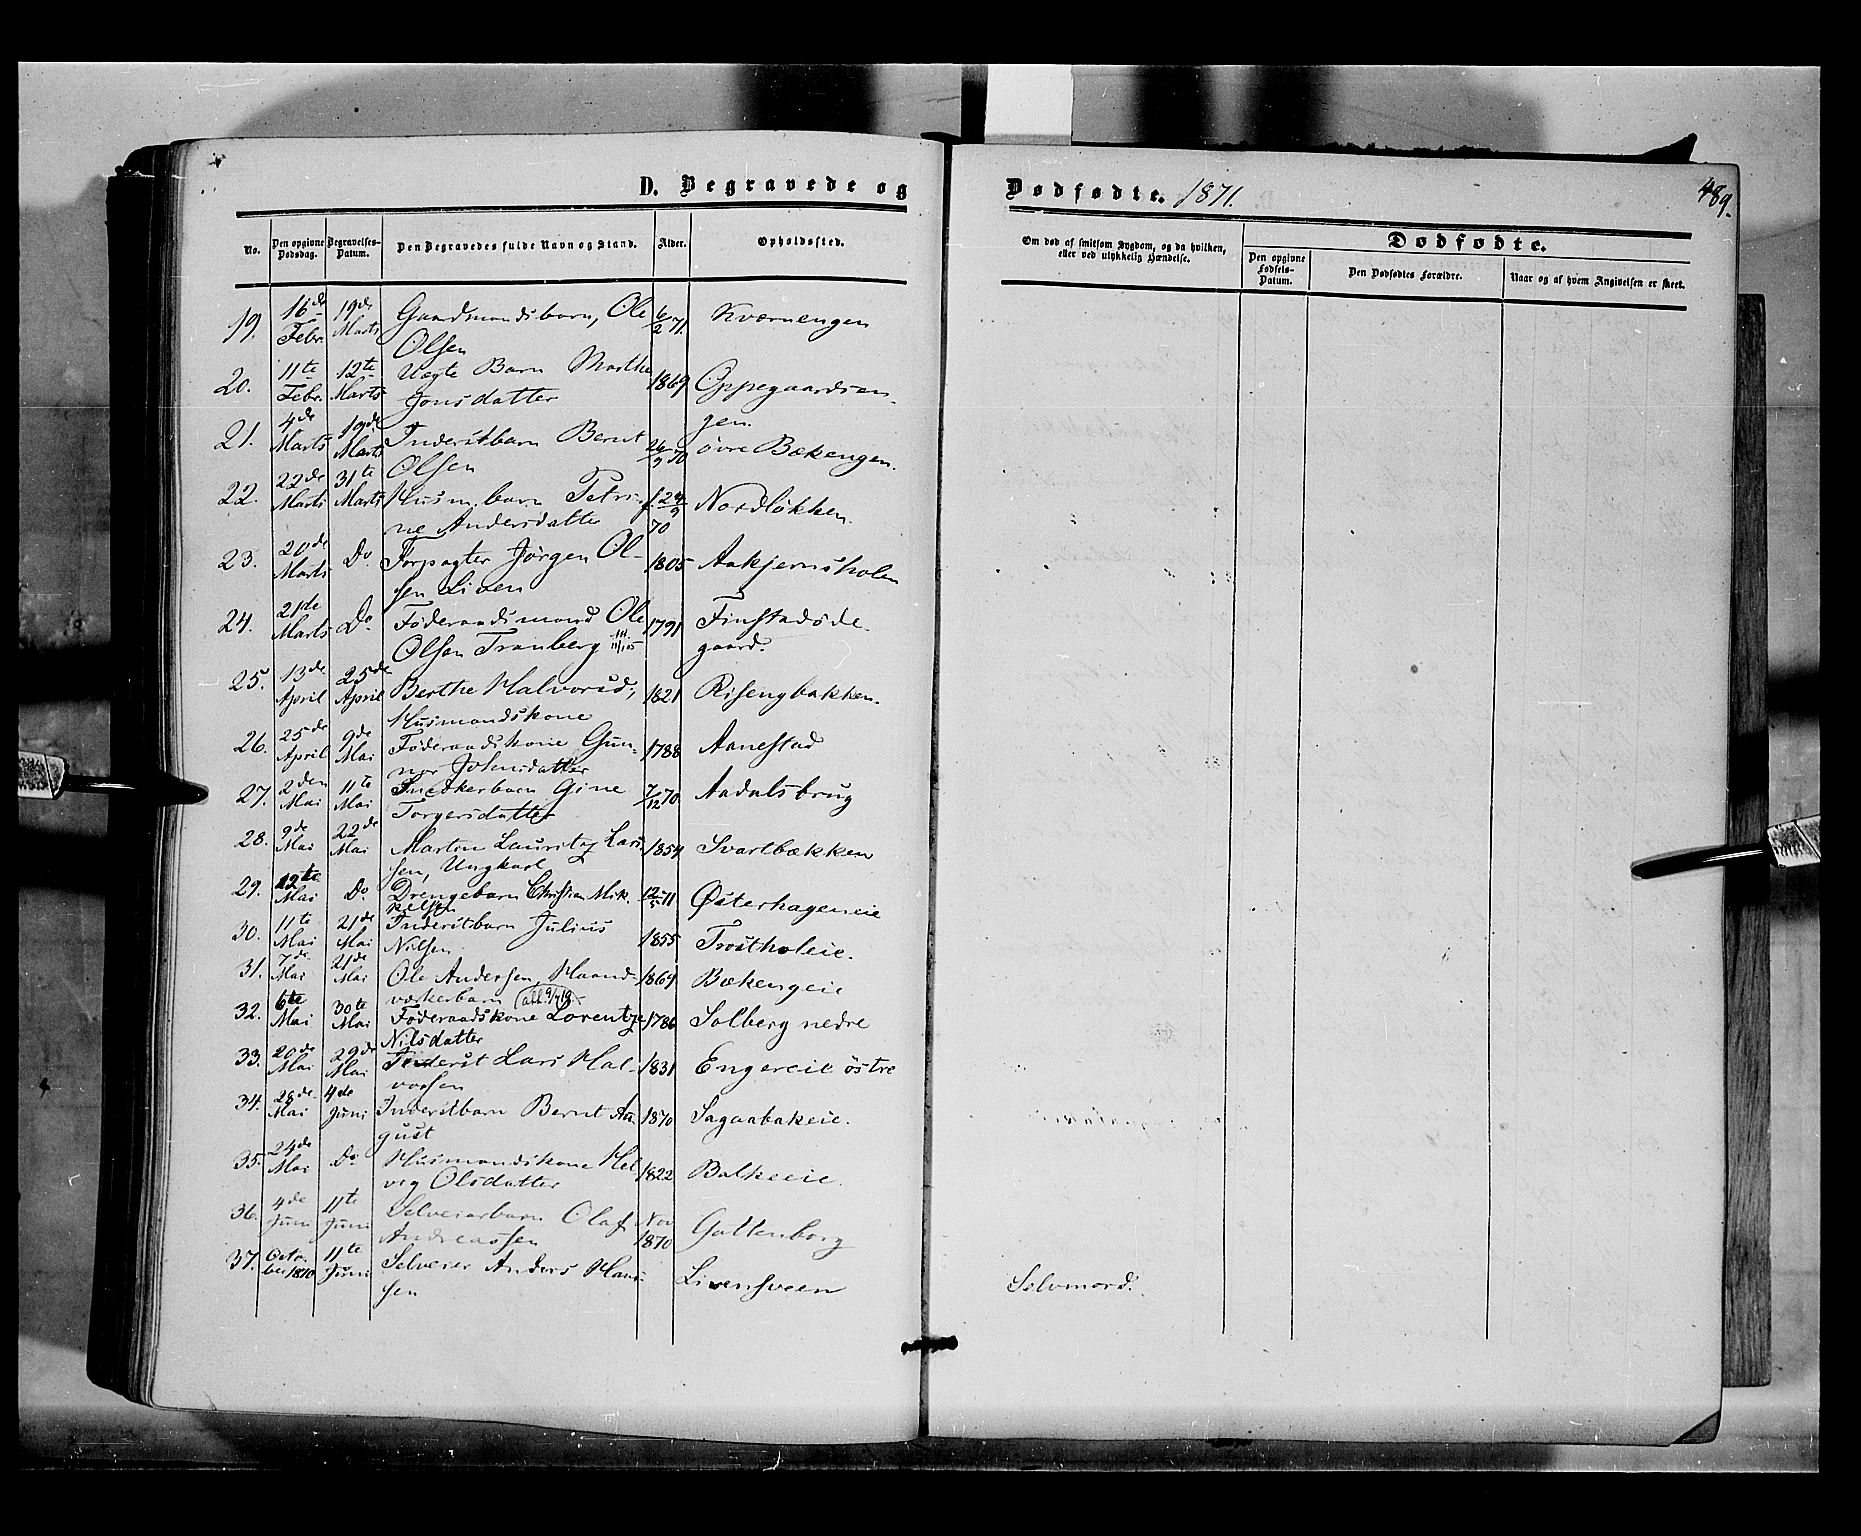 D. Begravede og
Dødfødte. 1871.
489.
No.
Den opgivne Dødsdag.
Begravelses-Datum.
Den Begravedes fulde Navn og Stand.
Alder.
Opholdssted.
Om død af smitsom Sygdom, og da hvilken, eller ved ulykkelig Hændelse.
Dødfødte.
Den opgivne Fødsels-Datum.
Den Dødfødtes Forældre.
Naar og af hvem Angivelsen er skeet.
19. 16de Febr. 19de Marts Gaardmandsbarn, Ole Olsen 6/2 71. Kværnengen
20. 11te Febr. 12te Marts Uægte Barn Marthe Jonsdatter 1869 Oppegaardsengen.
21. 4de Marts 19de Marts Inderstbarn Bernt Olsen 26/3 70 øvre Bækengen.
22. 22de Marts 31te Marts Husm.barn Petrine Andersdatter f. 24/9 70 Nordløkken.
23. 20de Marts Do. Forpagter Jørgen Olsen Liven 1805 Aakjernsholen
24. 21de Marts Do. Føderaadsmand Ole Olsen Tranberg 1791 Finstadødegaard.
25. 13de April 25de April Berthe Halvorsd., Husmandskone 1821 Risengbakken.
26. 25de April 9de Mai Føderaadskone Gunnor Johnsdatter 1788 Aanestad
27. 2den Mai 11te Mai Snedkerbarn Gine Torgersdatter 7/12 70 Aadalsbrug
28. 9de Mai 22de Mai Martin Lauritz Larsen, Ungkarl 1854 Svartbækken
29. 12te Mai Do. Drengebarn Christian Mikkelsen 12/5 71 Østerhageneie
30. 11te Mai 21de Mai Inderstbarn Julius Nilsen 1855 Trostholeie.
31. 7de Mai 21de Mai Ole Andersen, Haandværkerbarn 1869 Bækengeie
32. 6te Mai 30te Mai Føderaadskone Lorentze Nilsdatter 1786 Solberg nedre
33. 20de Mai 29de Mai Inderst Lars Halvorsen 1831 Engereie østre
34. 28de Mai 4de Juni Inderstbarn Bernt August 1870 Sagaabakeie.
35. 24de Mai Do. Husmandskone Helvig Olsdatter 1822 Balkeeie.
36. 4de Juni 11te Juni Selveierbarn Olaf Andreassen Nov 1870 Gultenborg
37. October 1870 11te Juni Selveier Anders Hansen Livensveen Selvmord.